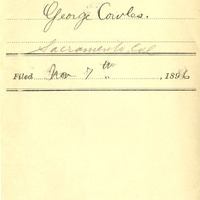 George Cowles.
Sacramento Cal
Filed Nov 7th , 1896